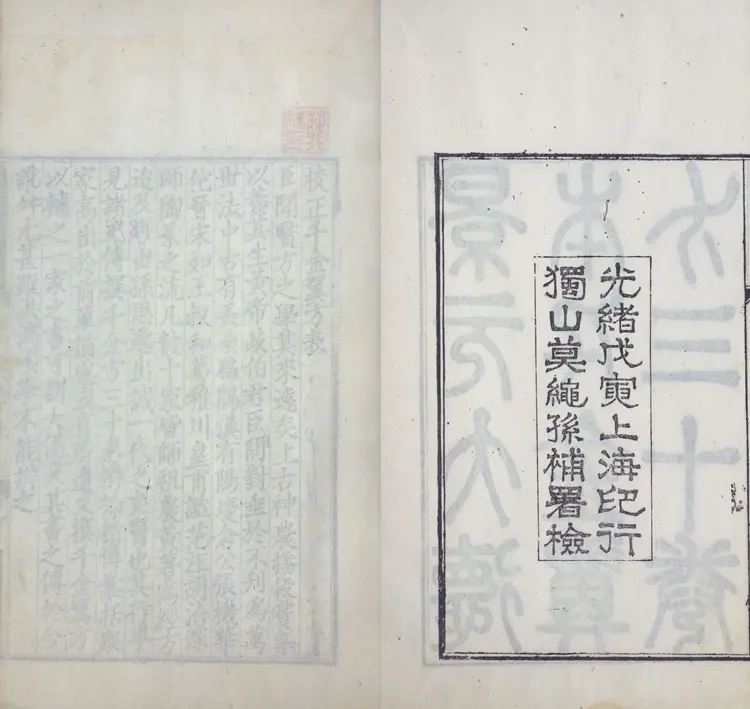 光緒戊寅上海印行
獨山莫繩孫補署檢
校正千金翼方表
臣聞醫方之學其來遠矣上古神農播穀嘗藥
以養其生黃帝歧伯君臣問對垂於不刊為萬
世法中古有長桑扁鵲漢有陽慶倉公張機華
佗晉宋如王叔和葛稚川皇甫謐范汪胡洽深
師陶景之流凡數十家皆師祖農黃著為經方
迨及唐世孫思邈出誠一代之良醫也其行事
見諸史傳撰千金方三十卷辨論精博囊括眾
家高出於前輩猶慮或有所遺又撰千金翼方
以輔之一家之書可謂大備矣其書之傳於今
訛舛尤甚雖洪儒碩學不能辨之